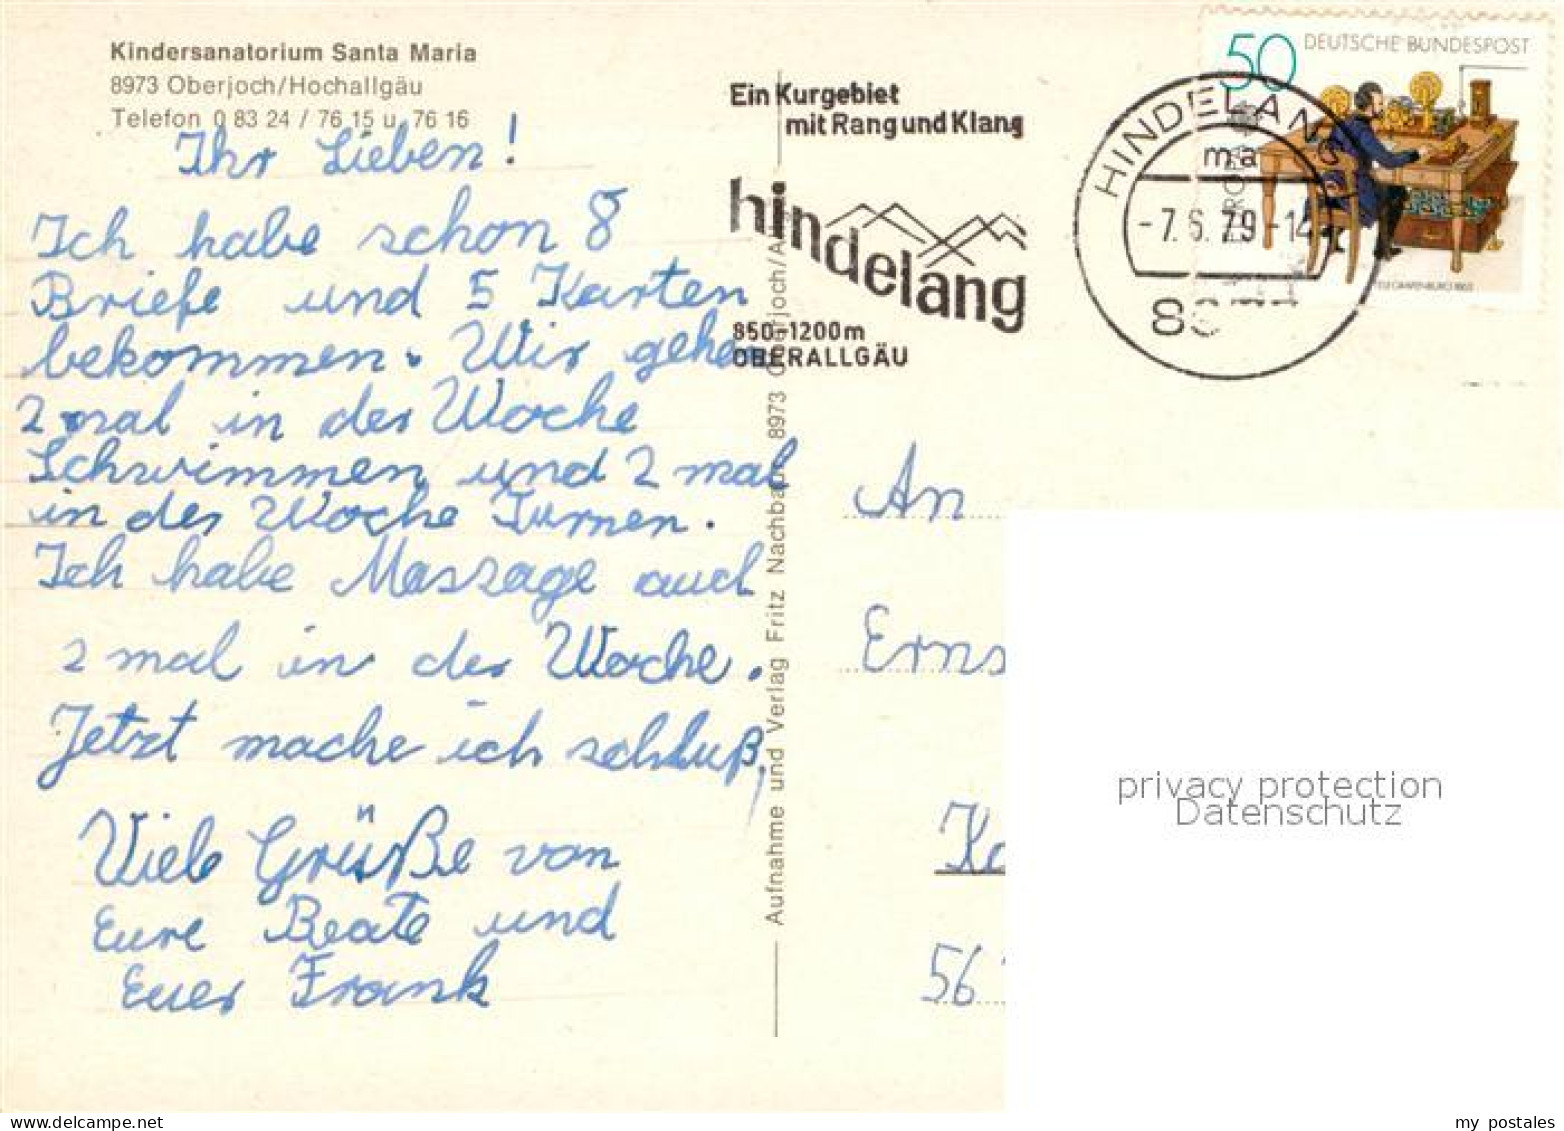 Kindersanatorium Santa Maria
8973 Oberjoch/Hochallgäu
Telefon 0 83 24 / 76 15 u. 76 16
Ihr Lieben!
Ich habe schon 8
Briefe und 5 Karten
bekommen. Wir gehen
2 mal in der Woche
Schwimmen und 2 mal
in der Woche Turnen.
Ich habe Massage auch
2 mal in der Woche.
Jetzt mache ich schluß,
Viele Grüße von
Eure Beate und
Euer Frank
Aufnahme und Verlag Fritz Nachbaur, 8973 Oberjoch/A
Ein Kurgebiet
mit Rang und Klang
hindelang
850-1200m
OBERALLGÄU
HINDELANG
ma
-7.6.79-14
50 DEUTSCHE BUNDESPOST
An
Erns
Ka
56
privacy protection
Datenschutz
my postales
www.delcampe.net